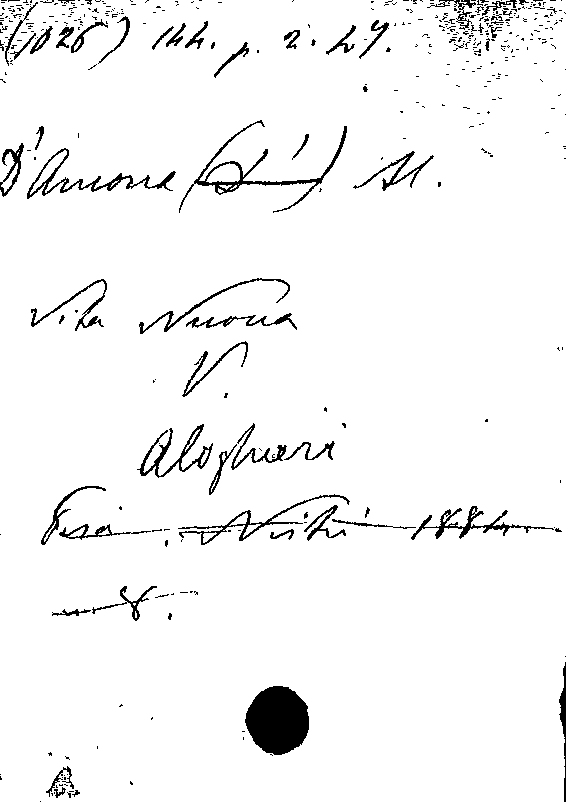 (1026) 144. p. 2. 27.
D'Ancona (D') Al.
Vita Nuova
V.
Aloghieri
Pisa. Nistri 1884.
8.